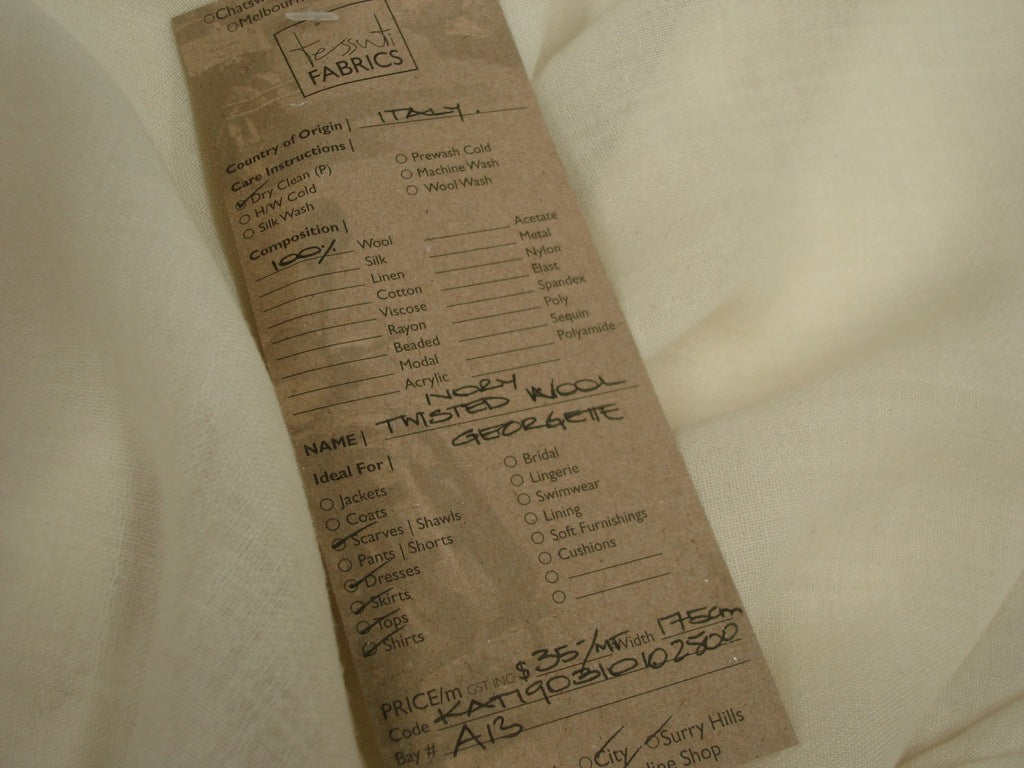 Chatsw
Melbour
tessuti
FABRICS
Country of Origin | ITALY.
Care Instructions |
Dry Clean (P) Prewash Cold
H/W Cold Machine Wash
Silk Wash Wool Wash
Composition |
100% Wool Acetate
Silk Metal
Linen Nylon
Cotton Elast
Viscose Spandex
Rayon Poly
Beaded Sequin
Modal Polyamide
Acrylic
IVORY
NAME | TWISTED WOOL
GEORGETTE
Ideal For |
Jackets Bridal
Coats Lingerie
Scarves | Shawls Swimwear
Pants | Shorts Lining
Dresses Soft Furnishings
Skirts Cushions
Tops
Shirts
PRICE/m GST INC $35-/MT Width 175cm
Code KAT190310102800
Bay # A13
City Surry Hills
line Shop